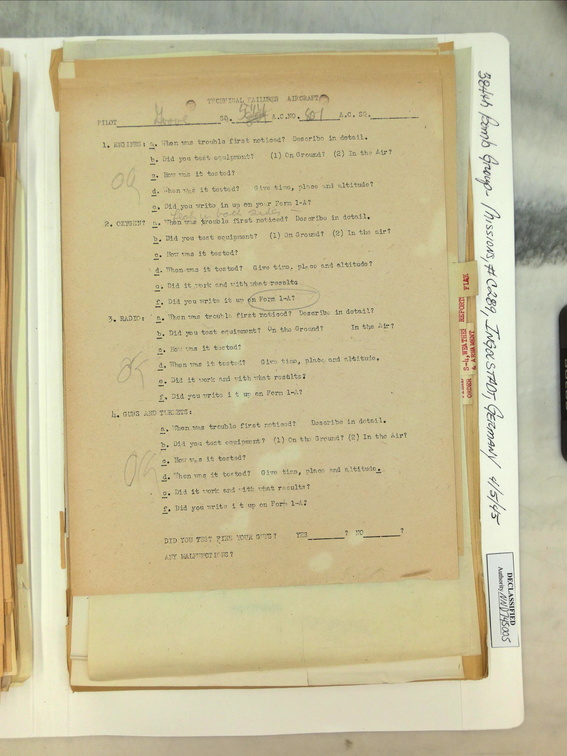 TECHNICAL FAILURES AIRCRAFT
PILOT SQ. 544 A.C.NO. 801 A.C. SQ.
1. ENGINES: a. When was trouble first noticed? Describe in detail.
b. Did you test equipment? (1) On Ground? (2) In the Air?
c. How was it tested?
OK
d. When was it tested? Give time, place and altitude?
e. Did you write in up on your Form 1-A?
Leak in both sides
2. OXYGEN? a. When was trouble first noticed? Describe in detail.
b. Did you test equipment? (1) On Ground? (2) In the air?
c. How was it tested?
d. When was it tested? Give time, place and altitude?
e. Did it work and with what results
f. Did you write it up on Form 1-A?
3. RADIO: a. When was trouble first noticed? Describe in detail?
b. Did you test equipment? On the Ground? In the Air?
c. How was it tested?
OK
d. When was it tested? Give time, place and altitude.
e. Did it work and with what results?
f. Did you write i t up on Form 1-A?
4. GUNS AND TURRETS:
a. When was trouble first noticed? Describe in detail.
b. Did you test equipment? (1) On the Ground? (2) In the Air?
c. How was it tested?
OK
d. When was it tested? Give time, place and altitude.
e. Did it work and with what results?
f. Did you write i t up on Form 1-A?
DID YOU TEST FIRE YOUR GUNS? YES ? NO ?
ANY MALFUNCTIONS?
384th Bomb Group Missions, #C289, INGOLSTADT, GERMANY 4/5/45
DECLASSIFIED
Authority NND745005